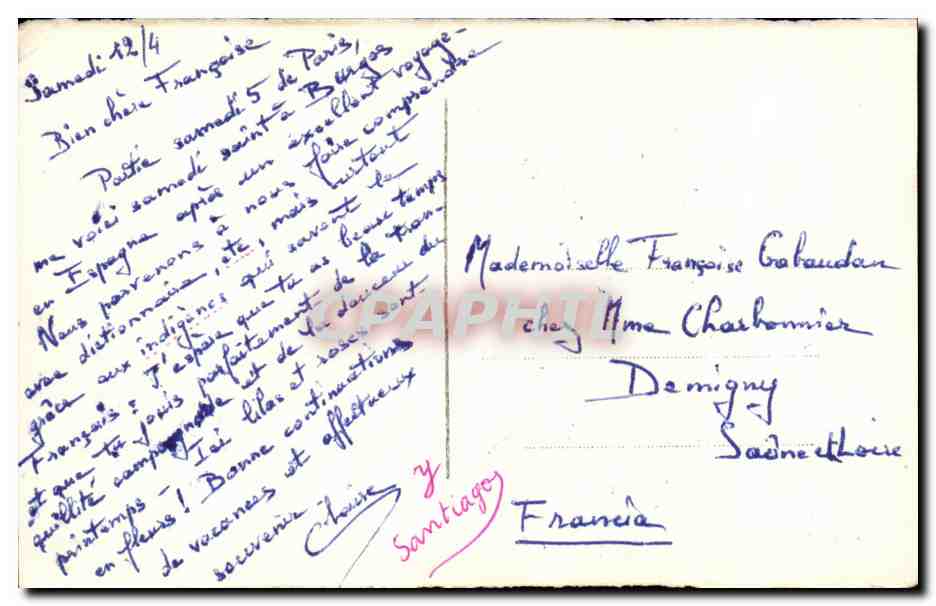 Samedi 12/4
Bien chère Françoise
Partie samedi 5 de Paris,
me voici samedi saint à Burgos
en Espagne après un excellent voyage -
Nous parvenons à nous faire comprendre
avec dictionnaire, etc, mais surtout
grâce aux indigènes qui savent le
Français ! J'espère que tu as beau temps
et que tu jouis parfaitement de la tran-
quillité campagnarde et de la douceur du
printemps - Ici lilas et roses sont
en fleurs ! Bonne continuations
de vacances et affectueux
souvenir
y
Santiago
Mademoiselle Françoise Gabaudan
chez Mme Charbonnier
Demigny
Saône et Loire
Francia
CPAPHIL